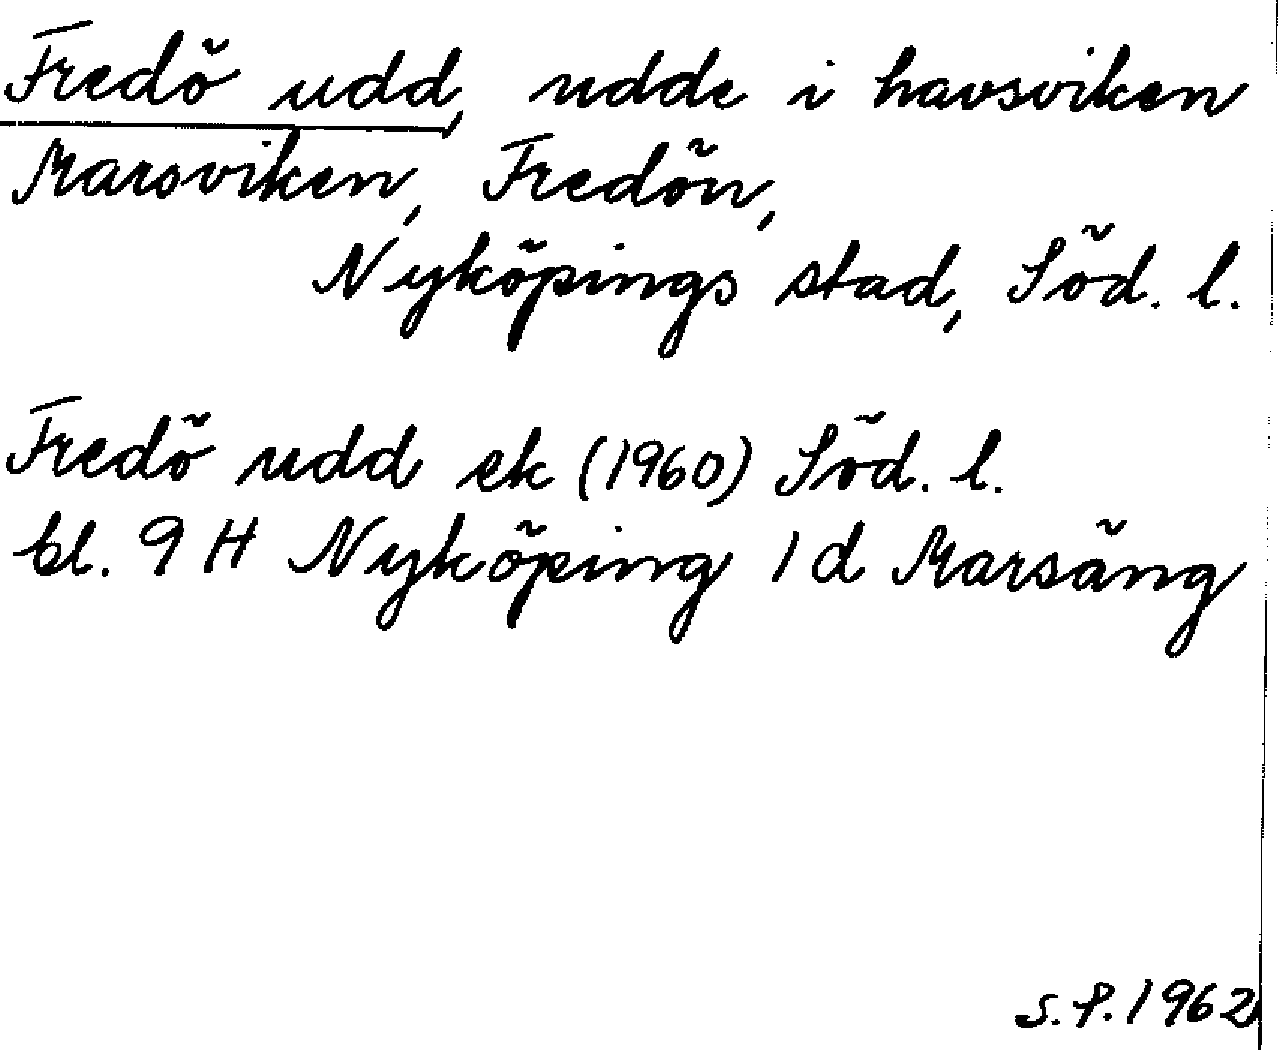 Fredö udd, udde i havsviken
Marsviken, Fredön,
Nyköpings stad, Söd. l.
Fredö udd ek (1960) Söd. l.
bl. 9 H Nyköping 1 d Marsäng
S.P. 1962